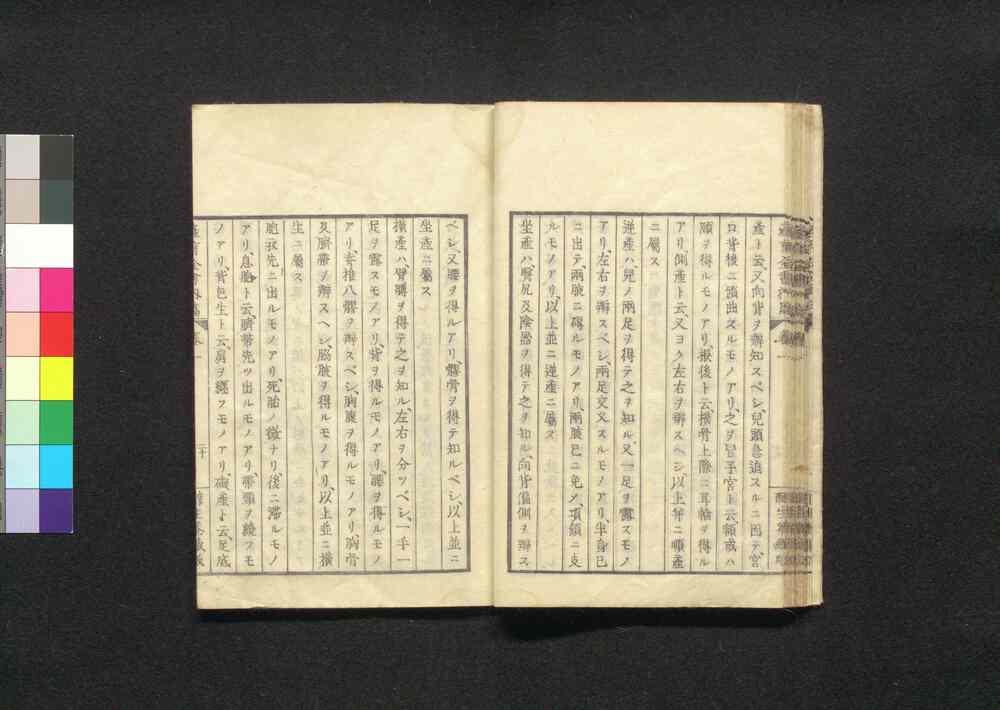 産ト云又向背ヲ辨知スベシ、兒頭急迫スルニ因テ宮
口背後ニ頭曲スルモノアリ、之ヲ冒子宮ト云、額或ハ
頤ヲ得ルモノアリ、後ト云、横骨上際ニ耳輪ヲ得ル
アリ、側産ト云、又ヨク左右ヲ辨スベシ、以上并ニ順産
ニ屬ス
逆産ハ兒ノ兩足ヲ得テ之ヲ知ル、又一足ヲ露スモノ
アリ、左右ヲ辨スベシ、兩足交叉スルモノアリ、半身已
ニ出テ、兩腋ニ碍ルモノアリ、兩腋已ニ免ノ項頷ニ支
ルモノアリ、以上並ニ逆産ニ屬ス
坐産ハ臀尻及陰器ヲ得テ之ヲ知ル、向背偏側ヲ辨ス
ベシ、又腰ヲ得ルアリ、髖骨ヲ得テ知ルベシ、以上並ニ
坐産ニ屬ス
横産ハ臂膊ヲ得テ之ヲ知ル、左右ヲ分ツベシ、一手一
足ヲ露スモノアリ、背ヲ得ルモノアリ、腰ヲ得ルモノ
アリ、脊推八髎ヲ辨スベシ、胸腹ヲ得ルモノアリ胸骨
及臍帶ヲ辨スヘシ、脇腋ヲ得ルモノアリ、以上並ニ横
生ニ屬ス
胞衣先ニ出ルモノアリ、死胎ノ徴ナリ、後ニ滯ルモノ
アリ、息胎ト云、臍帶先ツ出ルモノアリ、帶頸ヲ繞フモ
ノアリ、背包生ト云、肩ヲ纏フモノアリ、碍産ト云、足底